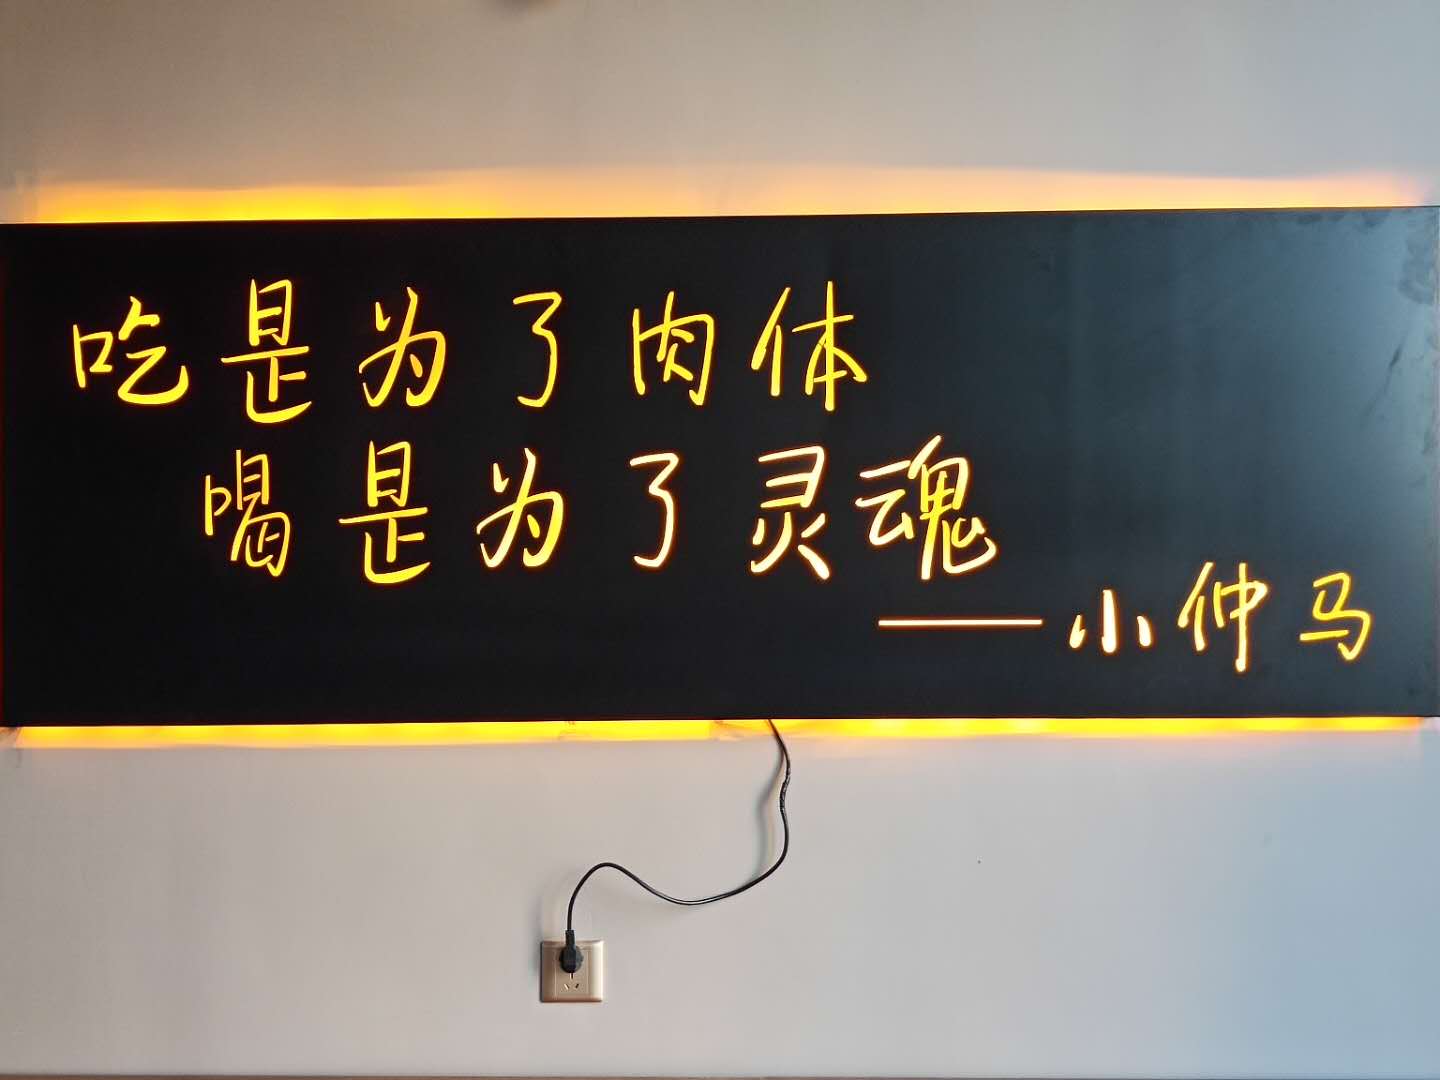 吃是为了肉体
喝是为了灵魂
——小仲马